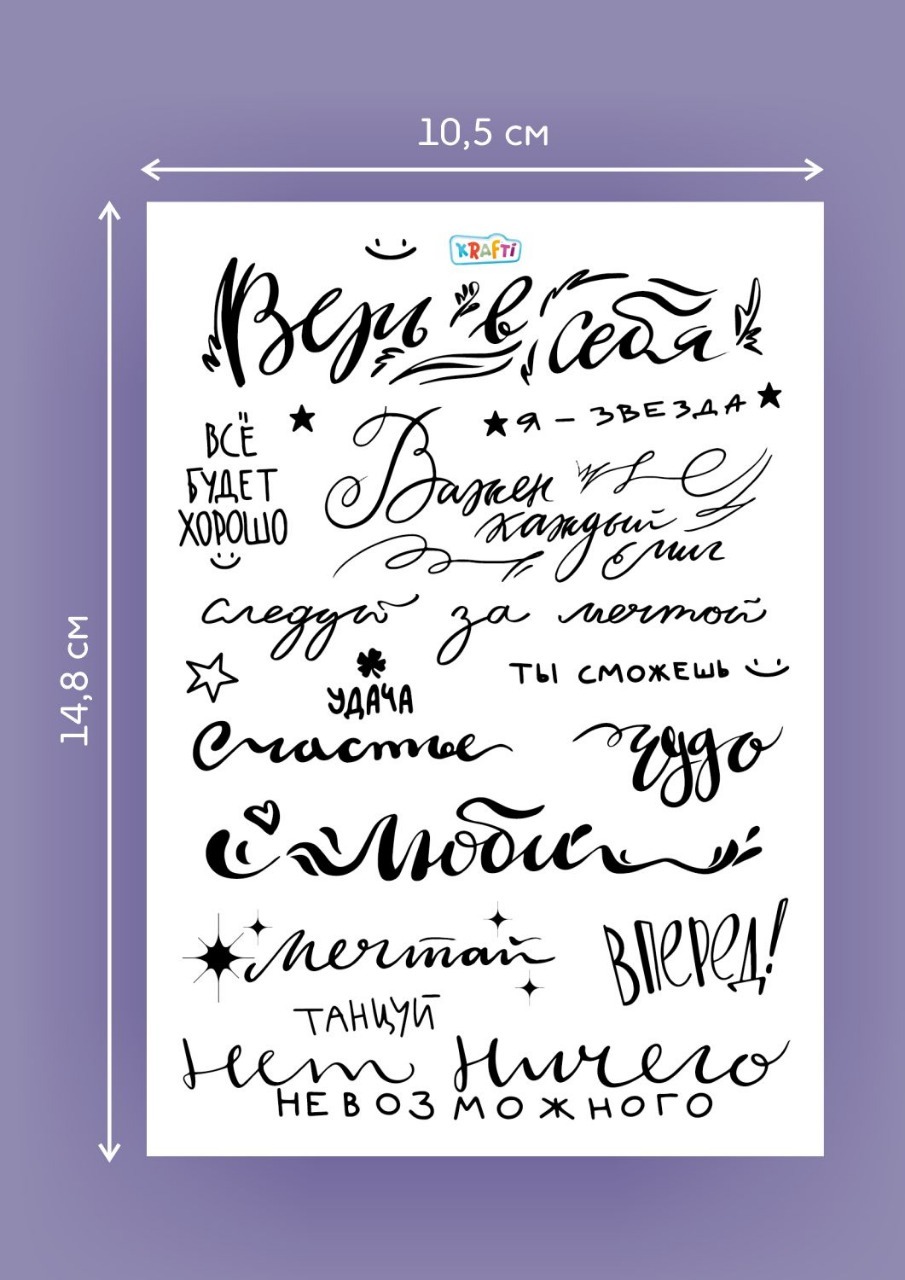 10,5 см
14,8 см
KRAFTi
Верь в себя
Я - ЗВЕЗДА
ВСЁ
БУДЕТ
ХОРОШО
Важен
каждый
миг
Следуй за мечтой
УДАЧА
ТЫ СМОЖЕШЬ
Счастье
чудо
Люби
Мечтай
ВПЕРЕД!
ТАНЦУЙ
Нет Ничего
НЕВОЗМОЖНОГО